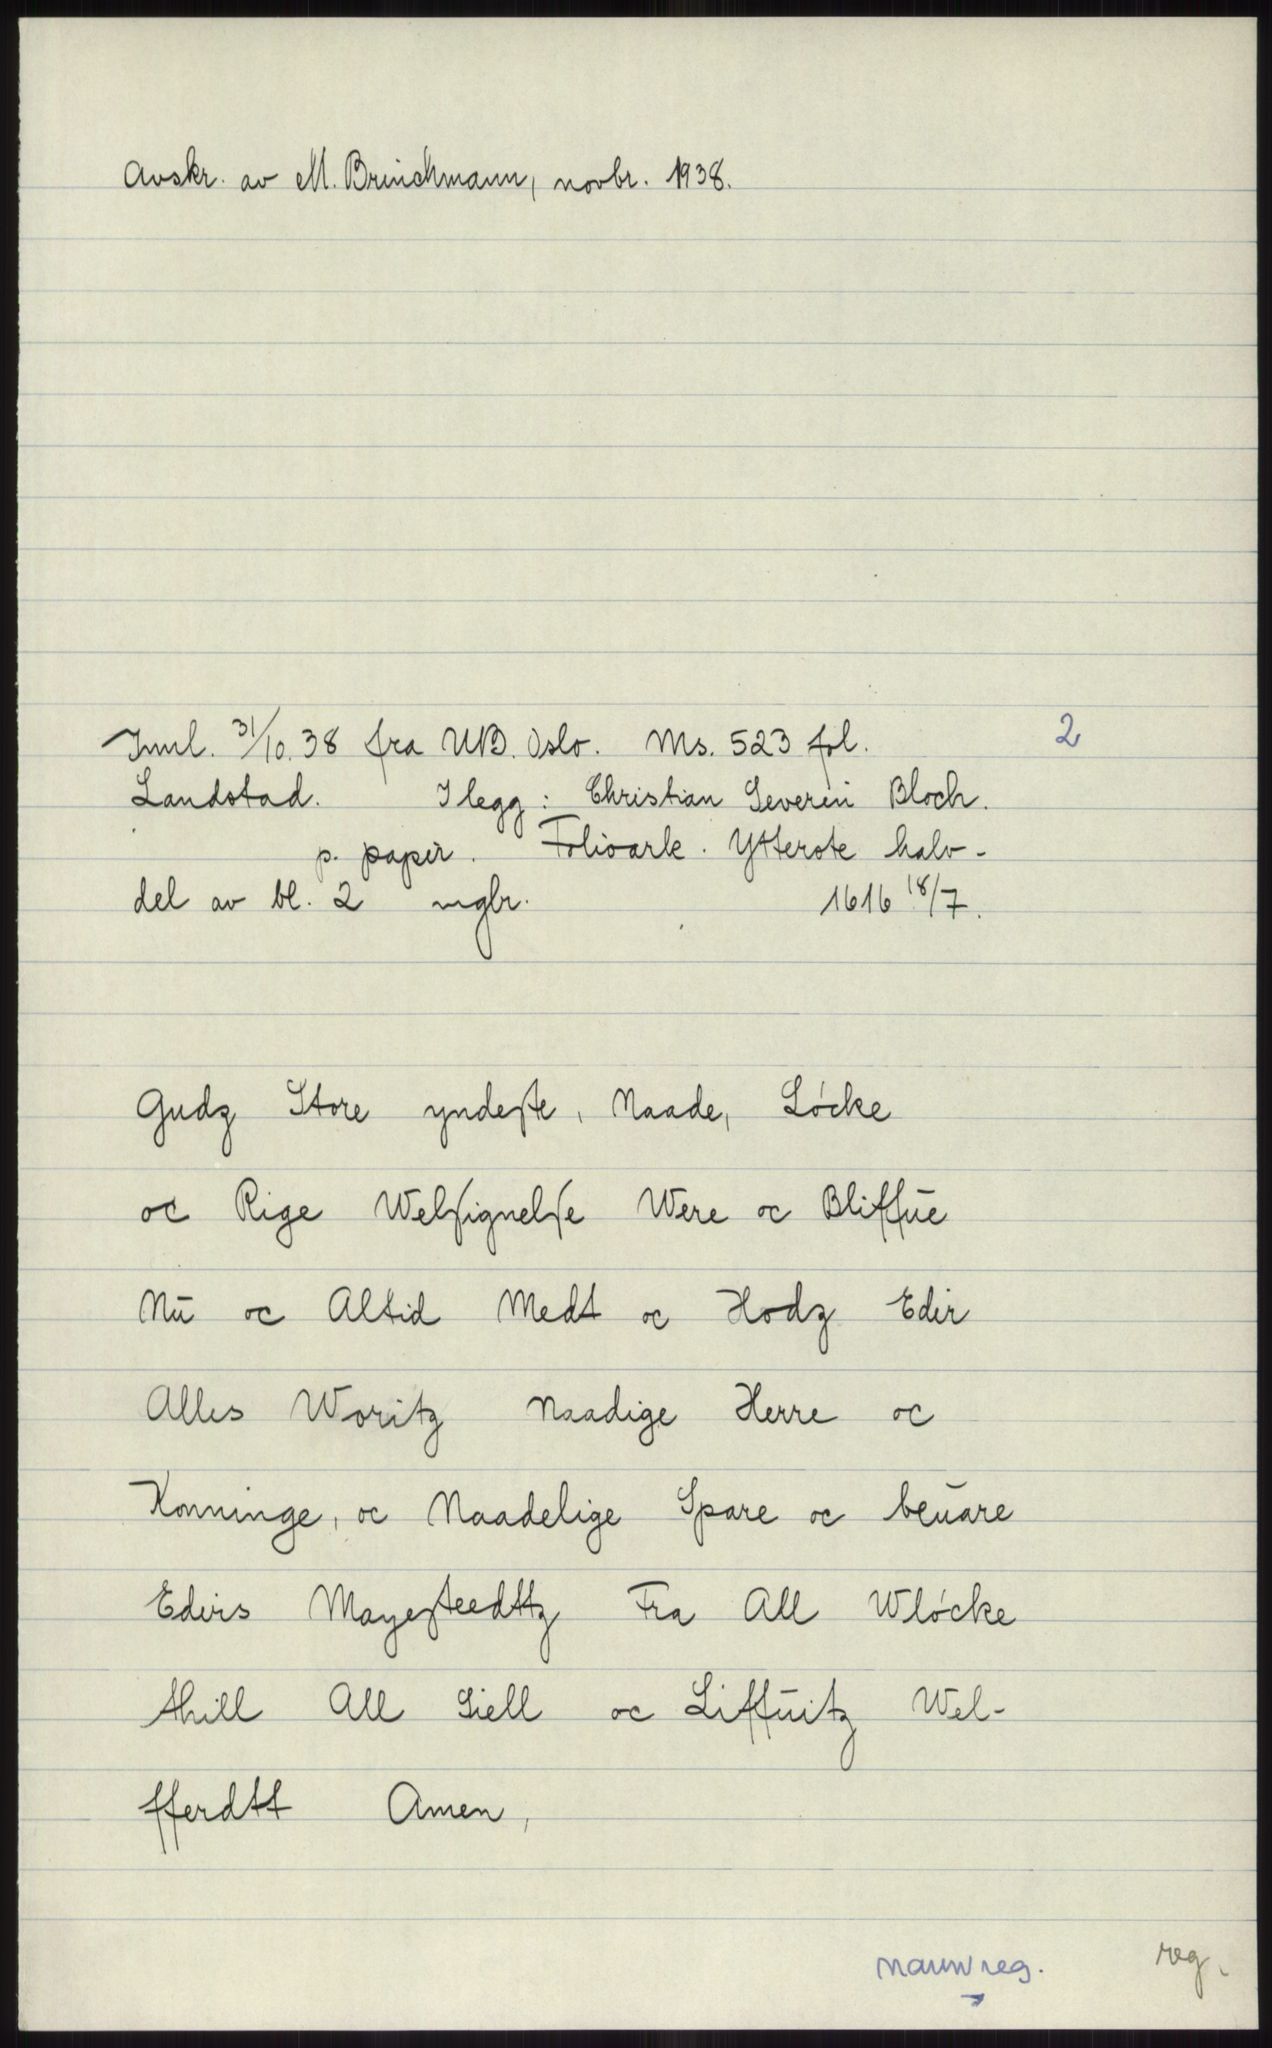 Avskr. av M. Brinchmann, novbr. 1938.
Innl. 31/10.38 fra UB. Oslo. Ms. 523 fol. 2
Landstad. I legg: Christian Severin Bloch.
p. papir. Folioark. Ytterste halv-
del av bl. 2 mglr. 1616 18/7.
Gudz Store yndeſte, Naade, Løcke
oc Rige Welſignelſe Were oc Bliffūe
Nū oc Altid Medt oc Hodz Edir
Alles Woritz Naadige Herre oc
Konninge, oc Naadelige Spare oc beūare
Edirs Mayeſteedttz Fra All Wløcke
thill All Siell oc Liffūitz Wel-
fferdtt Amen,
navnreg. reg.